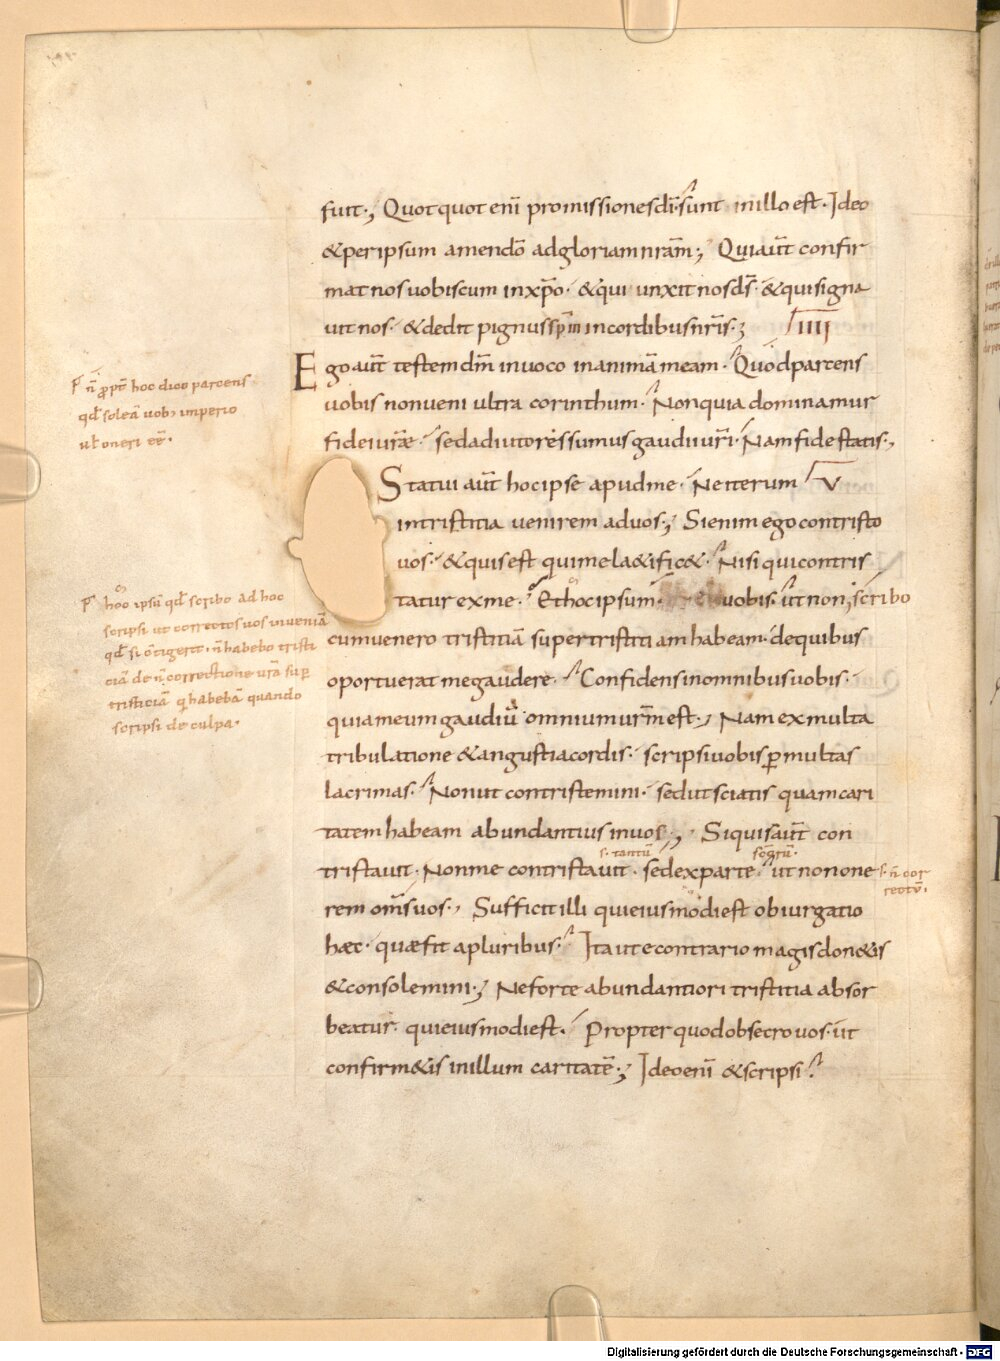 fuit·, Quotquot enī promissiones dī· sunt in illo est· Ideo
& per ipsum amen dō ad gloriam nrām·; Quia aūt confir
mat nos uobiscum in xp̄o· & qui unxit nos d̄s· & qui signa
uit nos· & dedit pignus sp̄m in cordibus nr̄is·; IIII
Ego aūt testem dm̄ inuoco in animā meam· Quod parcens
uobis non ueni ultra corinthum· Non quia dominamur
fidei uræ· sed adiutores sumus gaudii ur̄i· Nam fide statis·,
Statui aūt hoc ipse apud me· Ne iterum V
in tristitia uenirem ad uos·, Si enim ego contristo
uos· & quis est qui me l&ific&· Nisi qui contris
tatur ex me· Et hoc ipsum uobis· ut non, scribo
cum uenero tristitiā super tristitiam habeam· de quibus
oportuerat me gaudere· Confidens in omnibus uobis·
quia meum gaudiū omnium ur̄m est·, Nam ex multa
tribulatione & angustia cordis· scripsi uobis p multas
lacrimas· Non ut contristemini· sed ut sciatis quam cari
tatem habeam abundantius in uos·, Si quis aūt con
s· tantū
tristauit· Non me contristauit· sed ex parte· ut non one
s· n̄ cor
rectū·
rem om̄s uos·, Sufficit illi qui eius modi est obiurgatio
hæc· quæ fit a pluribus· Ita ut e contrario magis don&is
& consolemini·, Ne forte abundantiori tristitia absor
beatur· qui eius modi est· Propter quod obsecro uos· ut
confirm&is in illum caritatē·; Ideo enī & scripsi·
n̄ ꝓpt hoc dico parcens
qd̄ soleā uob; imperio
ul̄ oneri eē·
hoc ipsū qd̄ scribo ad hoc
scripsi ut correctos uos inueniā
qd̄ si ōtigerit· n̄ habebo tristi
ciā de n̄ correctione urā sup
tristiciā q habebā quando
scripsi de culpa·
Digitalisierung gefördert durch die Deutsche Forschungsgemeinschaft - DFG